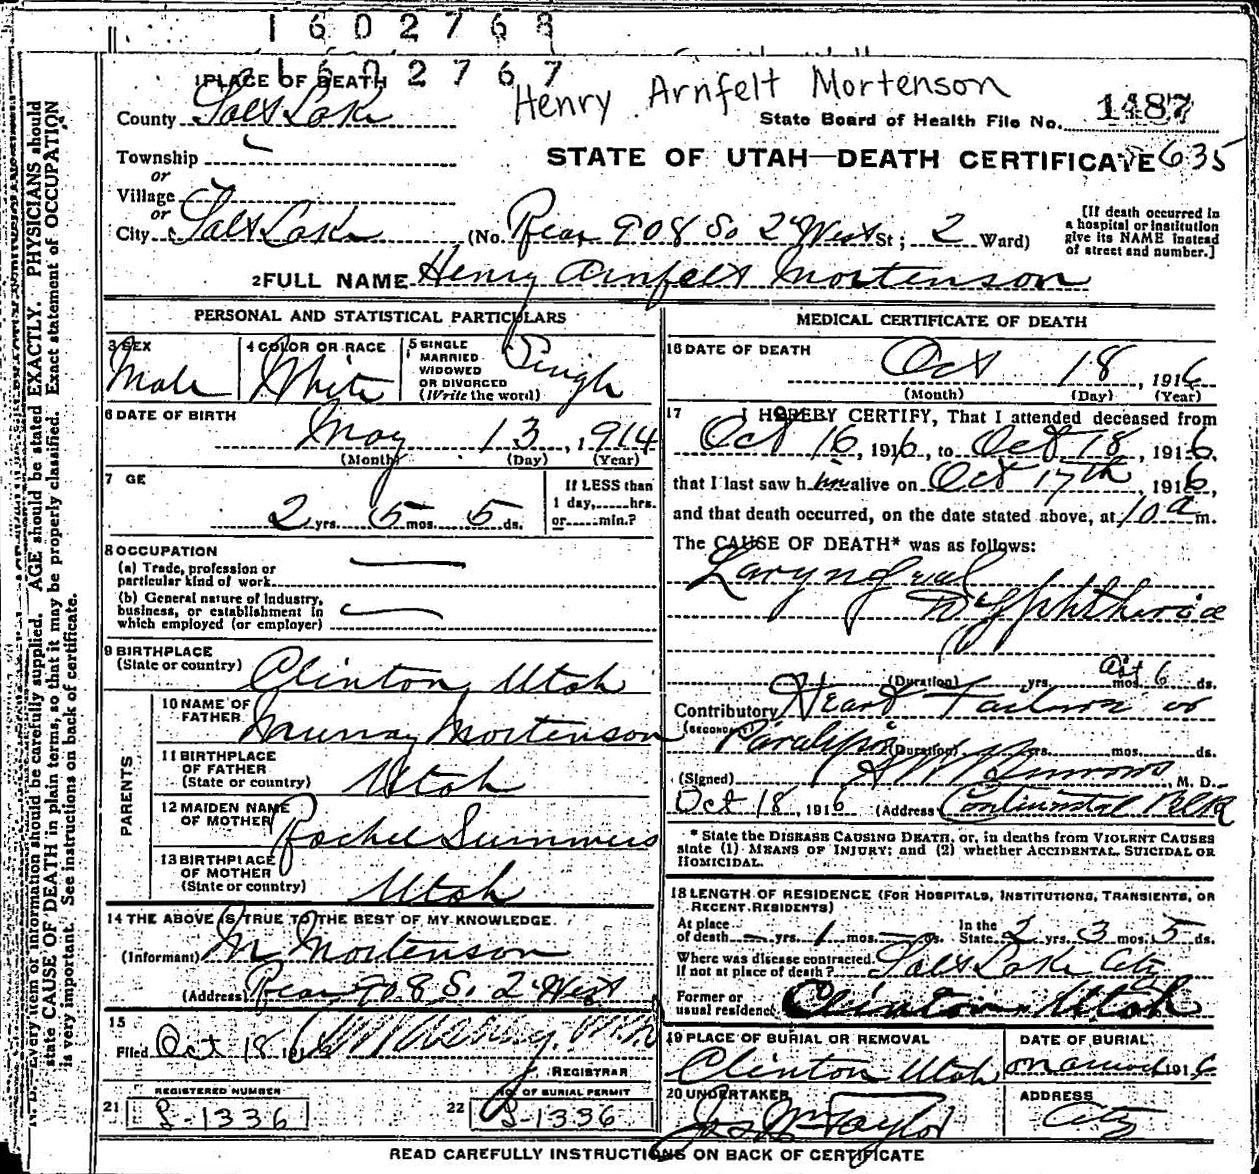 1602768
1602767
Henry Arnfelt Mortenson
1 PLACE OF DEATH
County Salt Lake
State Board of Health File No. 1487
Township
or
STATE OF UTAH—DEATH CERTIFICATE 635
Village
or
City Salt Lake (No. Rear 908 So 2d West St; 2 Ward)
[If death occurred in a hospital or institution give its NAME instead of street and number.]
2 FULL NAME Henry Arnfelt Mortenson
PERSONAL AND STATISTICAL PARTICULARS
3 SEX
Male
4 COLOR OR RACE
White
5 SINGLE MARRIED WIDOWED OR DIVORCED (Write the word)
Single
6 DATE OF BIRTH
May 13, 1914
(Month) (Day) (Year)
7 GE
2 yrs. 5 mos. 5 ds.
If LESS than 1 day,......hrs. or......min.?
8 OCCUPATION
(a) Trade, profession or
particular kind of work
(b) General nature of Industry,
business, or establishment in
which employed (or employer)
9 BIRTHPLACE
(State or country) Clinton, Utah
PARENTS
10 NAME OF FATHER Murray Mortenson
11 BIRTHPLACE OF FATHER (State or country) Utah
12 MAIDEN NAME OF MOTHER Rachel Summers
13 BIRTHPLACE OF MOTHER (State or country) Utah
14 THE ABOVE IS TRUE TO THE BEST OF MY KNOWLEDGE.
(Informant) M Mortenson
(Address) Rear 908 So 2d West
15
Filed Oct 18 1916
REGISTRAR
REGISTERED NUMBER
21 S-1336
NO. OF BURIAL PERMIT
22 S-1336
MEDICAL CERTIFICATE OF DEATH
16 DATE OF DEATH
Oct 18, 1916
(Month) (Day) (Year)
17 I HEREBY CERTIFY, That I attended deceased from
Oct 16, 1916, to Oct 18, 1916,
that I last saw him alive on Oct 17th, 1916,
and that death occurred, on the date stated above, at 10 a m.
The CAUSE OF DEATH* was as follows:
Laryngeal
Dyphtheria
(Duration) yrs. mos. 6 ds.
Contributory Heart Failure or
(SECONDARY) Paralysis (Duration) yrs. mos. ds.
(Signed) M. D.
Oct 18, 1916 (Address) Continental Blk
* State the DISEASE CAUSING DEATH, or, in deaths from VIOLENT CAUSES
state (1) MEANS OF INJURY; and (2) whether ACCIDENTAL, SUICIDAL OR
HOMICIDAL.
18 LENGTH OF RESIDENCE (FOR HOSPITALS, INSTITUTIONS, TRANSIENTS, OR
RECENT RESIDENTS)
At place of death — yrs. 1 mos. — ds. In the State 2 yrs. 3 mos. 5 ds.
Where was disease contracted, If not at place of death? Salt Lake City
Former or usual residence Clinton Utah
19 PLACE OF BURIAL OR REMOVAL
Clinton Utah
DATE OF BURIAL
1916
20 UNDERTAKER
Jos Wm Taylor
ADDRESS
City
READ CAREFULLY INSTRUCTIONS ON BACK OF CERTIFICATE
N. B.—Every item of information should be carefully supplied. AGE should be stated EXACTLY. PHYSICIANS should
state CAUSE OF DEATH in plain terms, so that it may be properly classified. Exact statement of OCCUPATION
is very important. See instructions on back of certificate.